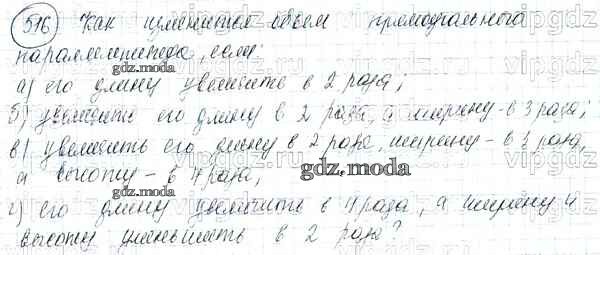 516 Как изменится объем прямоугольного
параллелепипеда, если:
а) его длину увеличить в 2 раза;
б) увеличить его длину в 2 раза, а ширину - в 3 раза;
в) увеличить его длину в 2 раза, ширину - в 3 раза,
а высоту - в 4 раза;
г) его длину увеличить в 4 раза, а ширину и
высоту уменьшить в 2 раза?
gdz.moda
gdz.moda
gdz.moda
vipgdz
vipgdz.ru